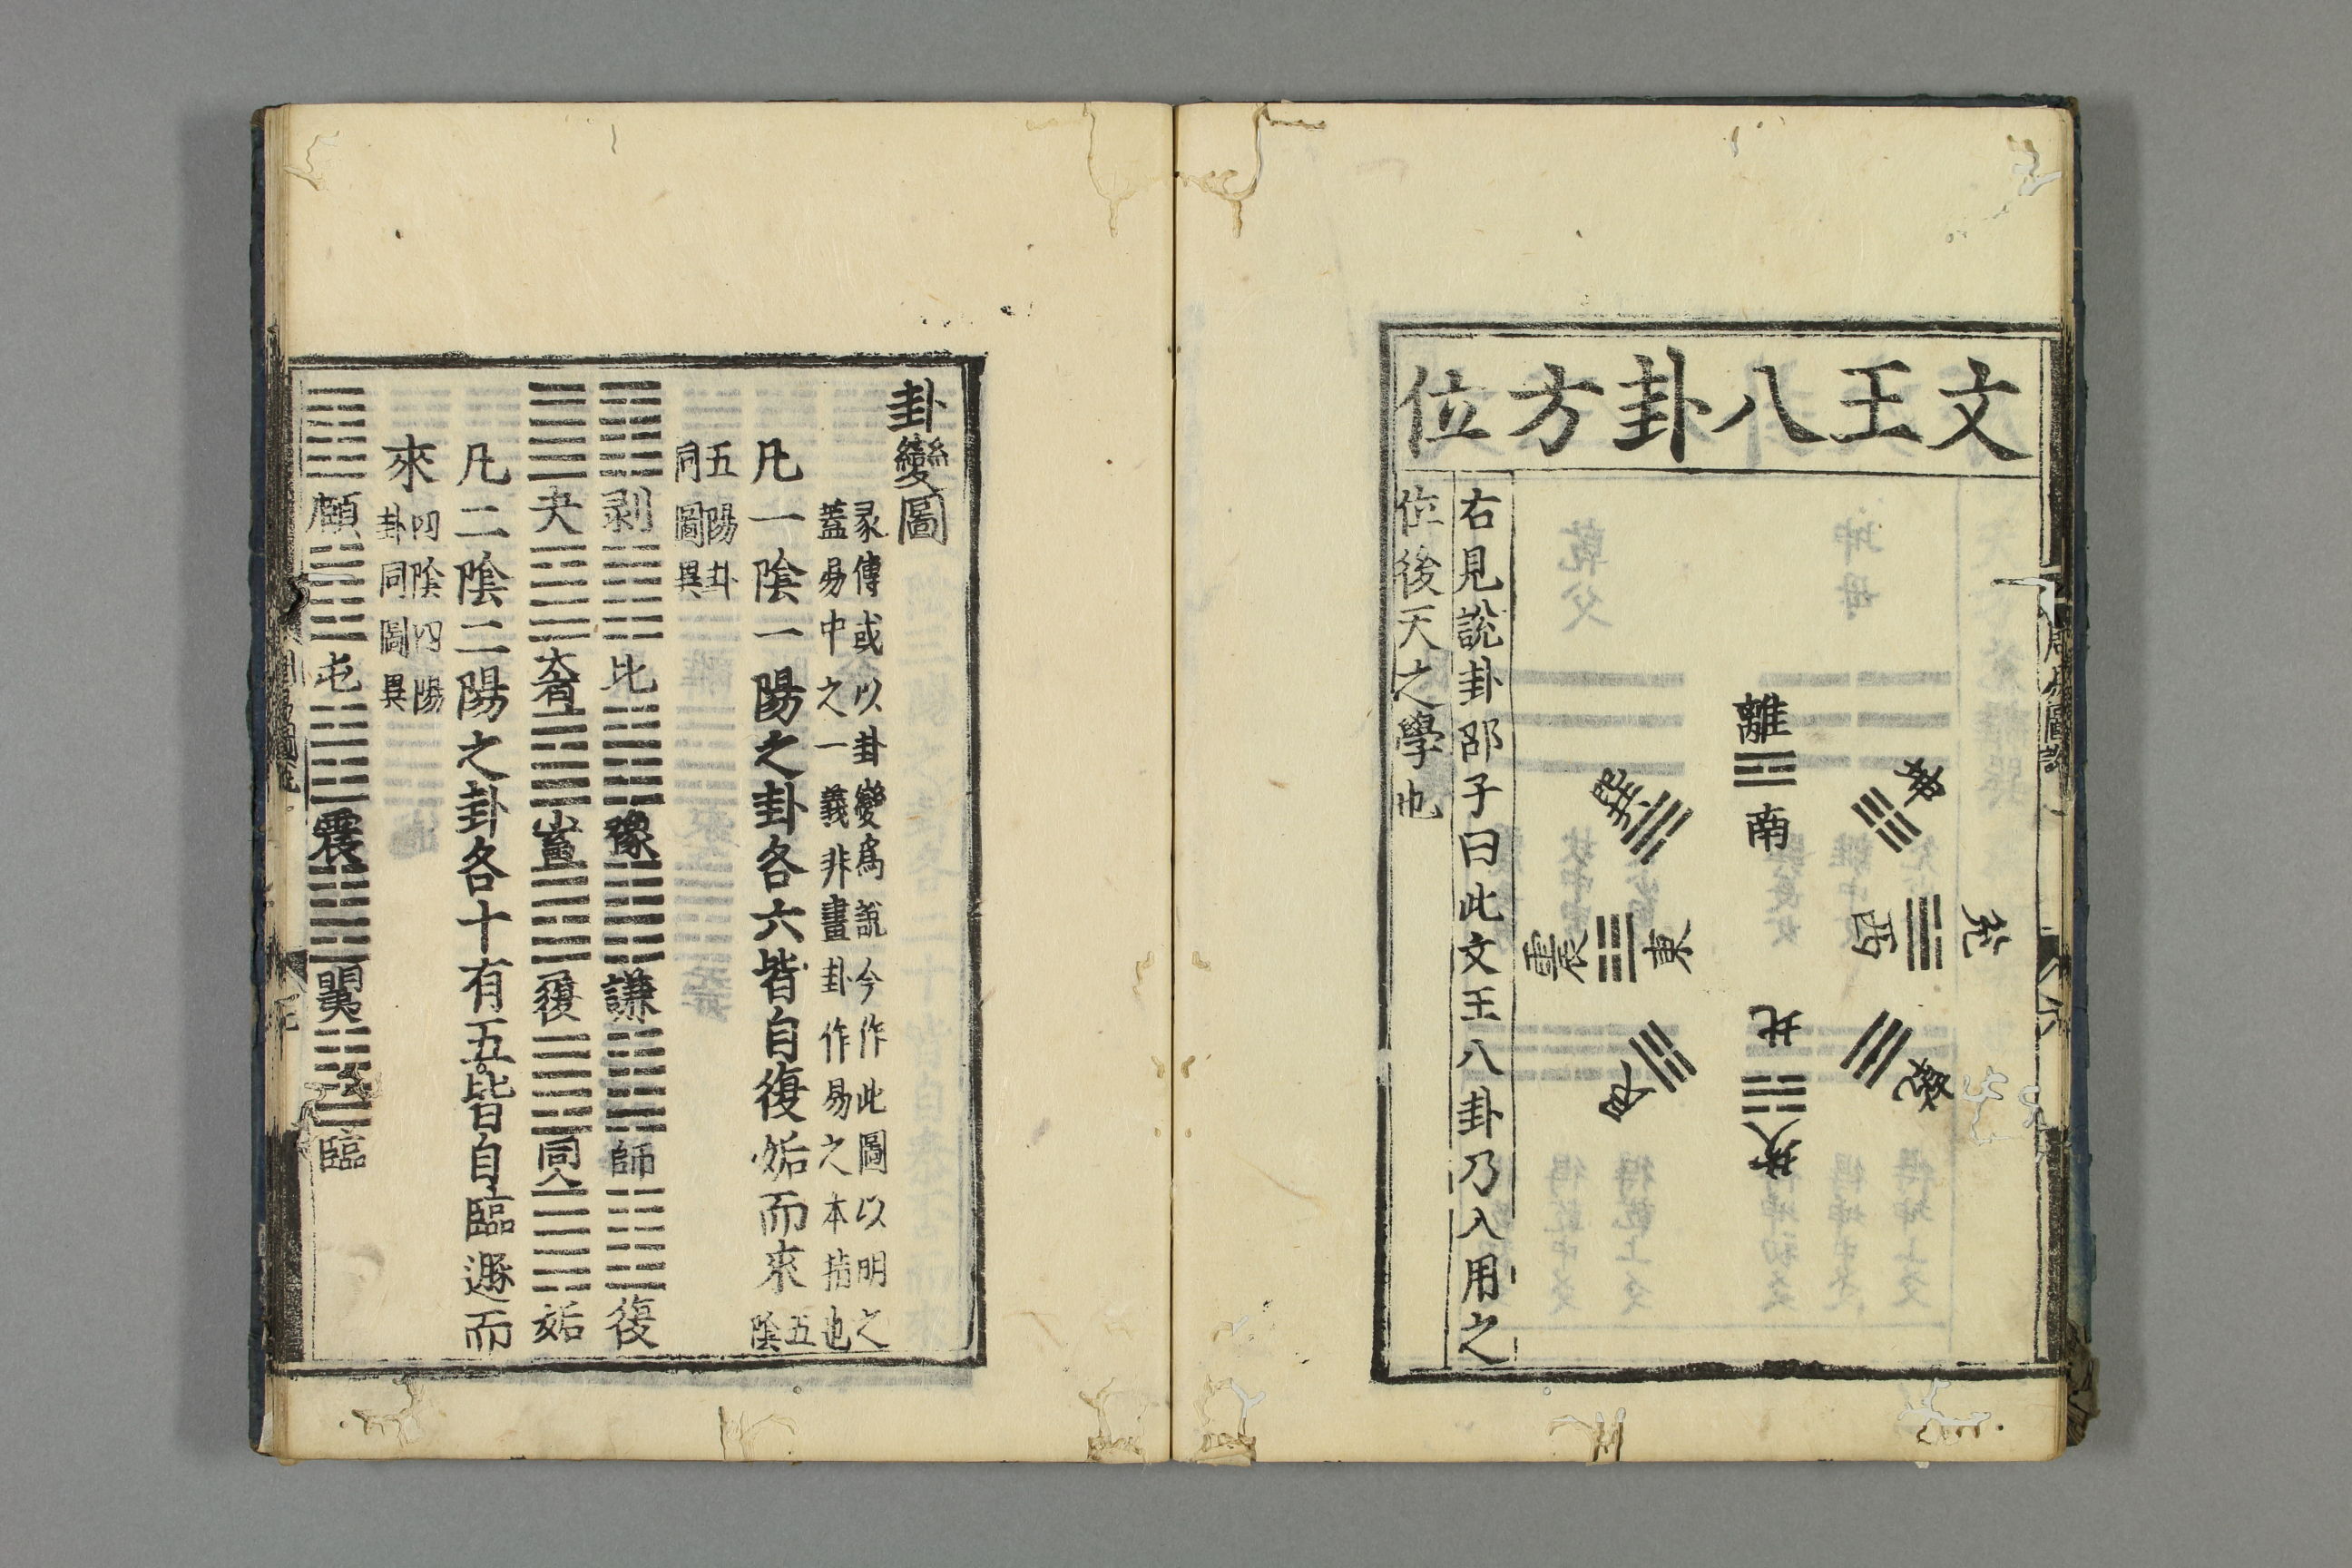 文王八卦方位
離
南
坤
兌
西
乾
北
坎
艮
震
東
巽
右見說卦邵子曰此文王八卦乃入用之
位後天之學也
卦變圖
彖傳或以卦變爲說今作此圖以明之
蓋易中之一義非畫卦作易之本指也
凡一陰一陽之卦各六皆自復姤而來五陰
五陽卦
同圖異
剥 比 豫 謙 師 復
夬 大有 小畜 履 同人 姤
凡二陰二陽之卦各十有五皆自臨遯而
來四陰四陽
卦同圖異
頤 屯 震 明夷 臨